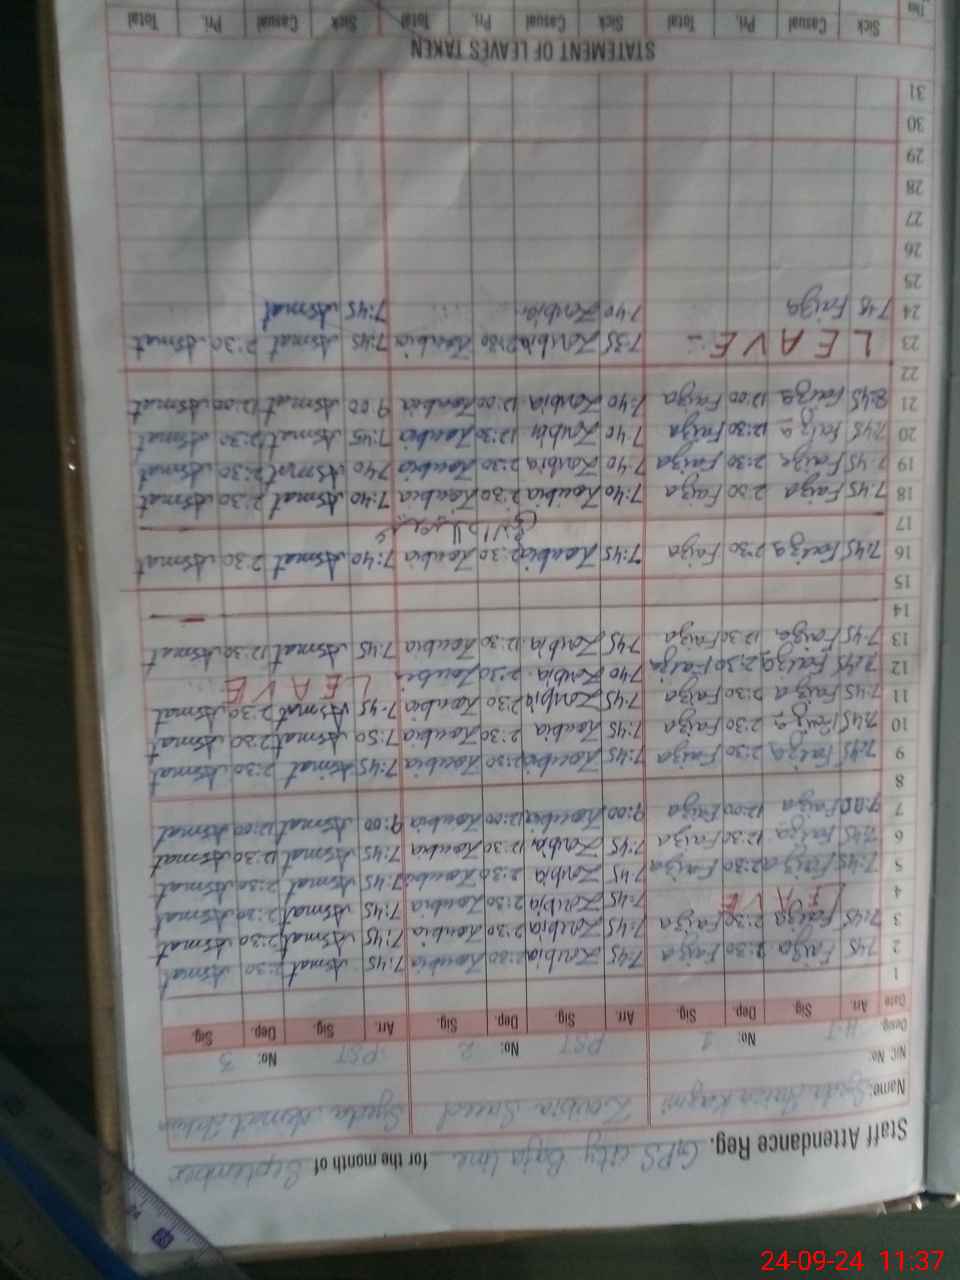 Staff Attendance Reg. GPS City Baja Line. for the month of September
Name: Syeda Faiza Kazmi Zoubia Saeed Syeda Asmat
NIC No:
Desig. HT No: 1 PST No: 2 PST No: 3
Date Arr. Sig. Dep. Sig. Arr. Sig. Dep. Sig. Arr. Sig. Dep. Sig.
1
2 7:45 Faiza 2:30 Faiza 7:45 Zoubia 2:30 Zoubia 7:45 Asmat 2:30 Asmat
3 7:45 Faiza 2:30 Faiza 7:45 Zoubia 2:30 Zoubia 7:45 Asmat 2:30 Asmat
4 LEAVE 7:45 Zoubia 2:30 Zoubia 7:45 Asmat 2:30 Asmat
5 7:45 Faiza 2:30 Faiza 7:45 Zoubia 2:30 Zoubia 7:45 Asmat 2:30 Asmat
6 7:45 Faiza 12:30 Faiza 7:45 Zoubia 12:30 Zoubia 7:45 Asmat 12:30 Asmat
7 9:00 Faiza 12:00 Faiza 9:00 Zoubia 12:00 Zoubia 9:00 Asmat 12:00 Asmat
8
9 7:45 Faiza 2:30 Faiza 7:45 Zoubia 2:30 Zoubia 7:45 Asmat 2:30 Asmat
10 7:45 Faiza 2:30 Faiza 7:45 Zoubia 2:30 Zoubia 7:50 Asmat 2:30 Asmat
11 7:45 Faiza 2:30 Faiza 7:45 Zoubia 2:30 Zoubia 7:45 Asmat 2:30 Asmat
12 7:45 Faiza 2:30 Faiza 7:40 Zoubia 2:30 Zoubia LEAVE
13 7:45 Faiza 12:30 Faiza 7:45 Zoubia 12:30 Zoubia 7:45 Asmat 12:30 Asmat
14
15
16 7:45 Faiza 2:30 Faiza 7:45 Zoubia 2:30 Zoubia 7:40 Asmat 2:30 Asmat
17
18 7:45 Faiza 2:30 Faiza 7:40 Zoubia 2:30 Zoubia 7:40 Asmat 2:30 Asmat
19 7:45 Faiza 2:30 Faiza 7:40 Zoubia 2:30 Zoubia 7:40 Asmat 2:30 Asmat
20 7:45 Faiza 12:30 Faiza 7:40 Zoubia 12:30 Zoubia 7:45 Asmat 12:30 Asmat
21 8:45 Faiza 12:00 Faiza 7:40 Zoubia 12:00 Zoubia 9:00 Asmat 12:00 Asmat
22
23 LEAVE 7:35 Zoubia 2:30 Zoubia 7:45 Asmat 2:30 Asmat
24 7:45 Faiza 7:40 Zoubia 7:45 Asmat
25
26
27
28
29
30
31
STATEMENT OF LEAVES TAKEN
Sick Casual Pri. Total Sick Casual Pri. Total Sick Casual Pri. Total
24-09-24 11:37